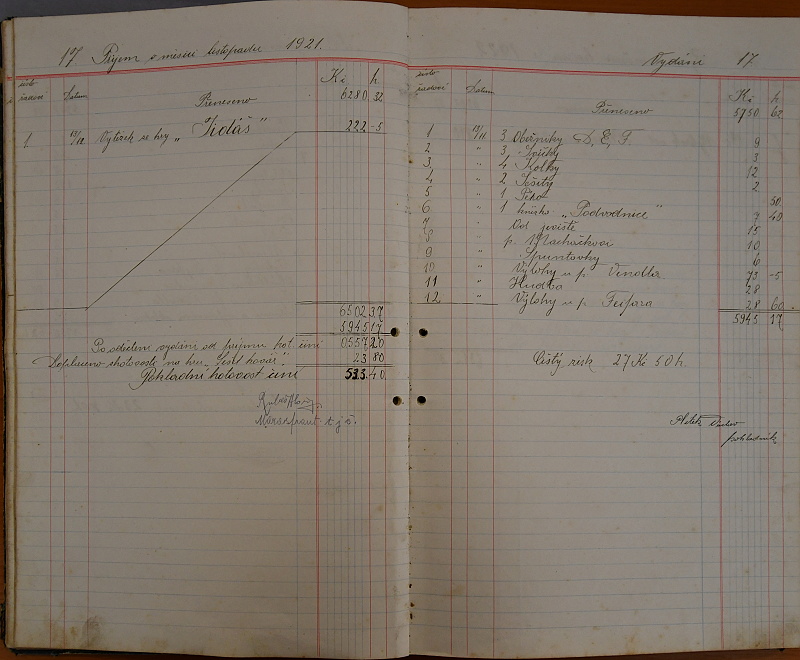 17. Příjem v měsíci listopadu 1921.
číslo řadové Datum Kč h
Přeneseno 6280 32
1. 13/12 Výtěžek ze hry „Židáš" 222 - 5
6502 37
5945 17
Po odečtení vydání od příjmu hot. činí 0557 20
Doplaceno hotovosti na hru „Lešt kovář" 23 80
Pokladní hotovost činí 533 40
Vydání 17.
číslo řadové Datum Kč h
Přeneseno 5750 62
1 13/11 3 D, E, F. 9
2 " 3 3
3 " 4 Kolky 12
4 " 2 Sešity 2
5 " 1 Péro 50
6 " 1 knížka „Podvodnice" 7 40
7 " Od jeviště 15
8 " p. Macháčkovi 10
9 " Špuntovky 6
10 " Výlohy u p. Vendla 73 - 5
11 " Hudba 28
12 " Výlohy u p. Fufara 28 60
5945 17
Čistý zisk 27 Kč 50 h.
Václav
pokladník